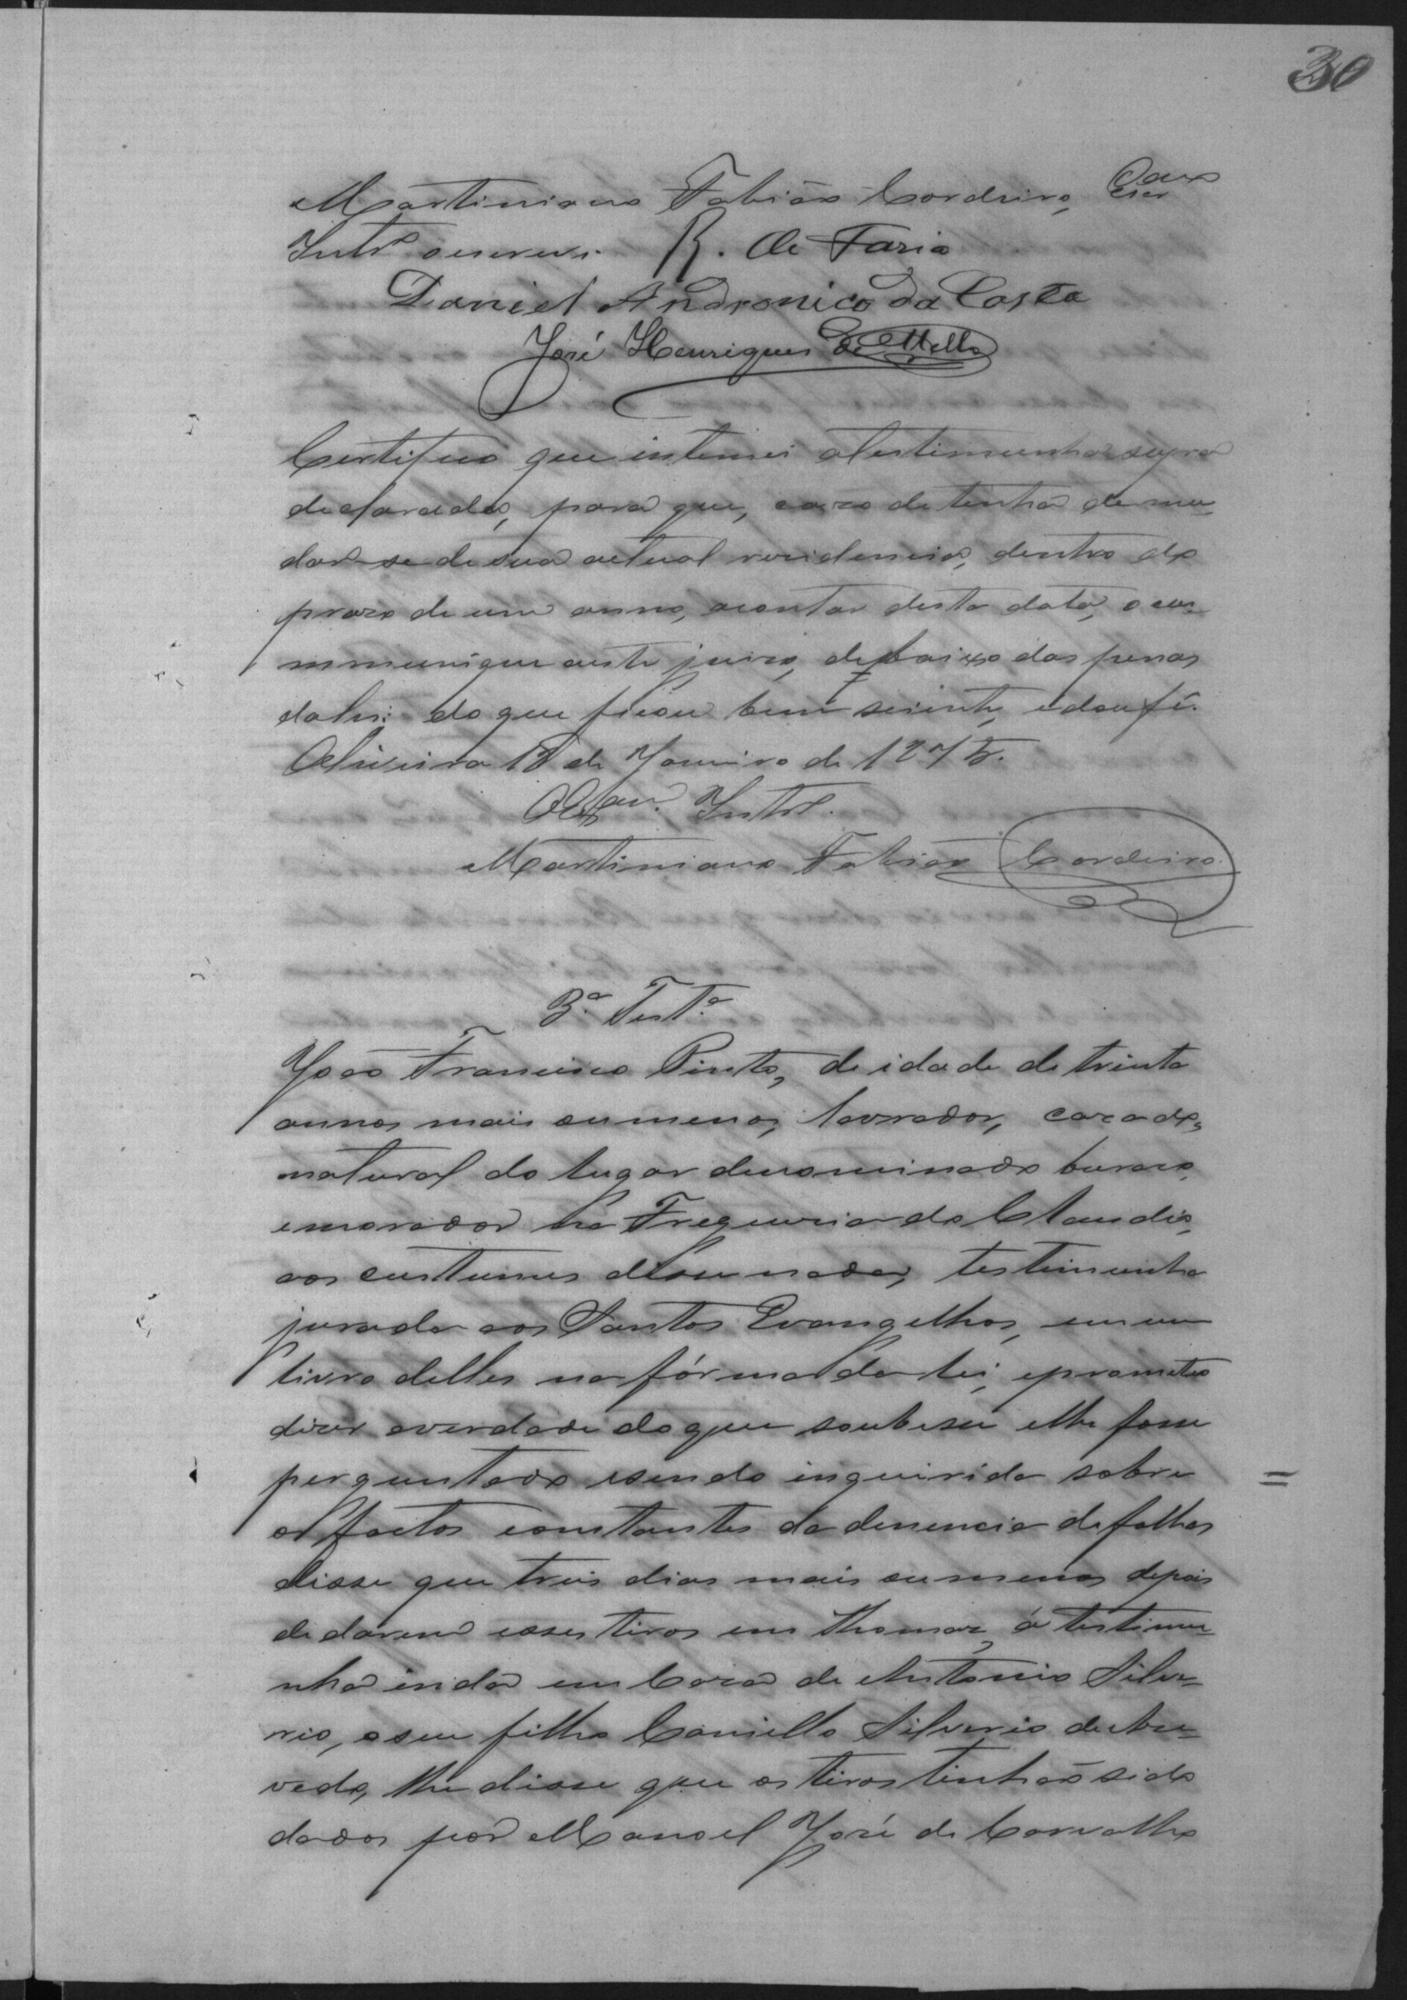 30
Martiniano Fabião Cordeiro, Escr
Intr.º o escrevi. R. de Faria
Daniel Andronico da Costa
José Henriques de Mello
Certifico que intimei a testimunha supra
declarada, para que, caso de tenha de mu-
dar-se de sua actual residencia, dentro do
praso de um anno, a contar desta data, o com-
mmunique a este juiso, debaixo das penas
da lei: do que ficou bem sciente, e dou fé.
Oliveira 18 de Janeiro de 1875.
O Escr.am Intr.º
Martiniano Fabião Cordeiro
3.ª Test.ª
João Francisco Pinto, de idade de trinta
annos mais ou menos, lavrador, casado,
natural do lugar denominado buraco,
e morador na Freguesia do Claudio,
aos custumes disse nada, testimunha
jurada aos Santos Evangelhos, em um
livro delles na fórma da lei, e prometeo
diser a verdade do que soubesse e lhe fosse
perguntado e sendo inquirida sobre
os factos constantes da denuncia de folhas
disse que tres dias mais ou menos depois
de darem esses tiros em Thomaz, á testimu-
nha indo em Casa de Antonio Silve-
rio, o seu filho Camillo Silverio de Aze-
vedo, lhe disse que os tiros tinhão sido
dados por Manoel José de Carvalho